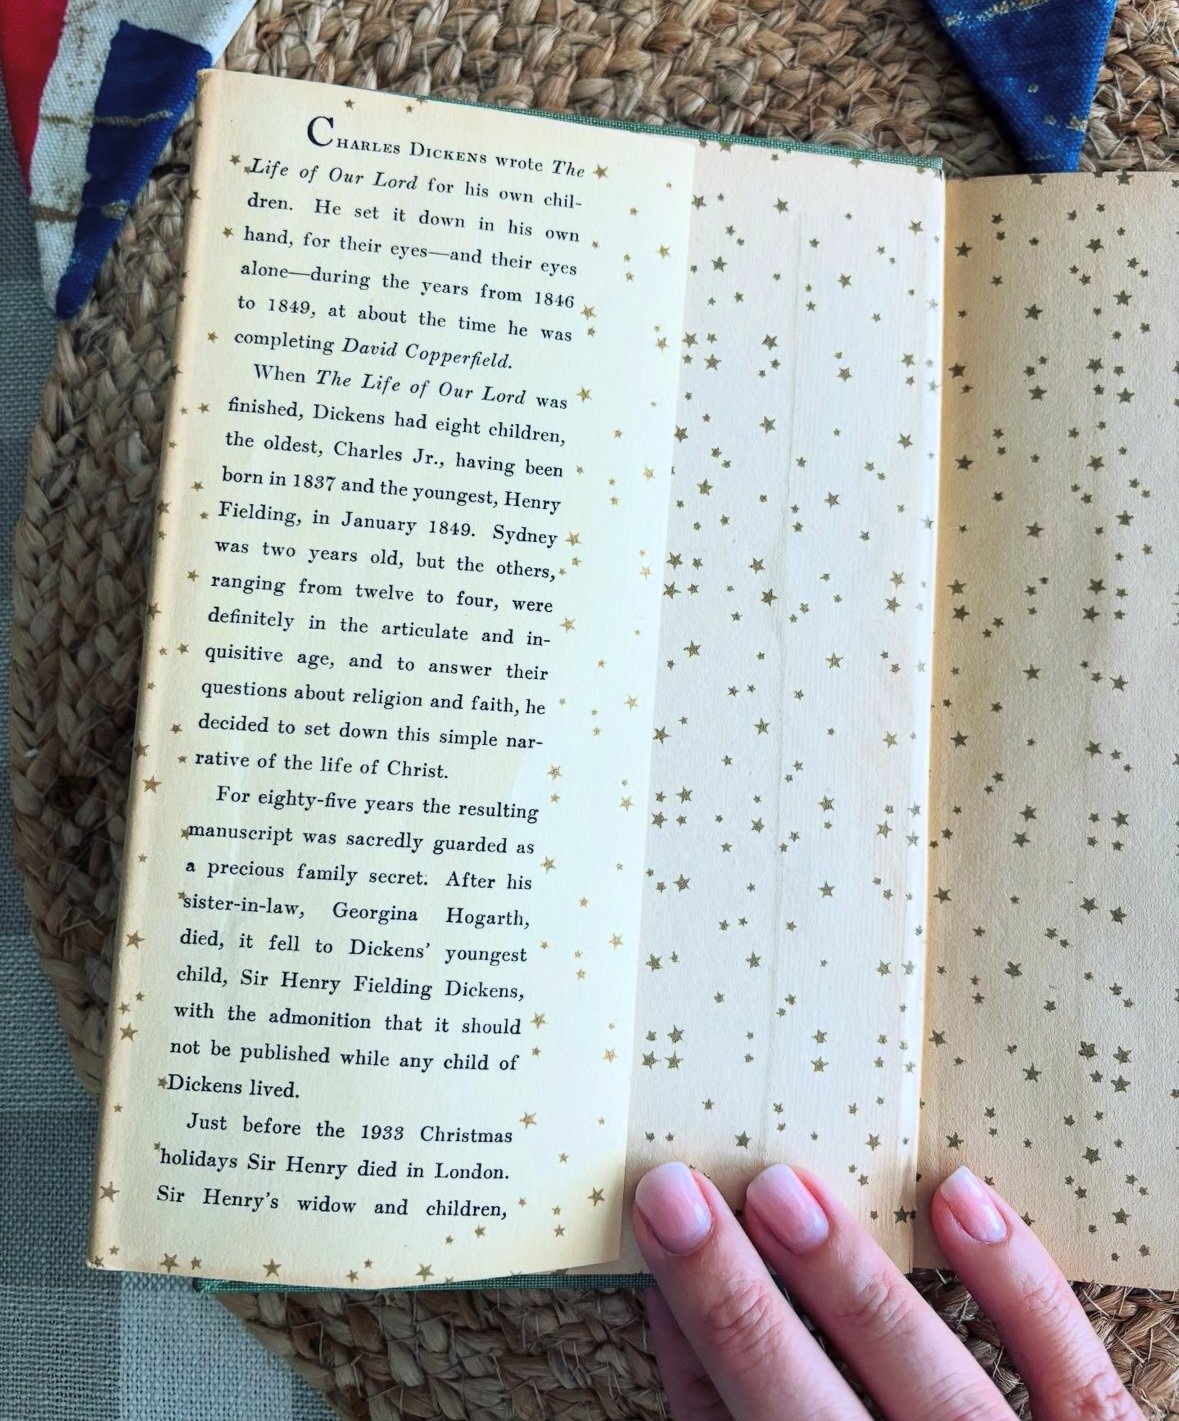 CHARLES DICKENS wrote The
Life of Our Lord for his own chil-
dren. He set it down in his own
hand, for their eyes—and their eyes
alone—during the years from 1846
to 1849, at about the time he was
completing David Copperfield.
When The Life of Our Lord was
finished, Dickens had eight children,
the oldest, Charles Jr., having been
born in 1837 and the youngest, Henry
Fielding, in January 1849. Sydney
was two years old, but the others,
ranging from twelve to four, were
definitely in the articulate and in-
quisitive age, and to answer their
questions about religion and faith, he
decided to set down this simple nar-
rative of the life of Christ.
For eighty-five years the resulting
manuscript was sacredly guarded as
a precious family secret. After his
sister-in-law, Georgina Hogarth,
died, it fell to Dickens' youngest
child, Sir Henry Fielding Dickens,
with the admonition that it should
not be published while any child of
Dickens lived.
Just before the 1933 Christmas
holidays Sir Henry died in London.
Sir Henry's widow and children,